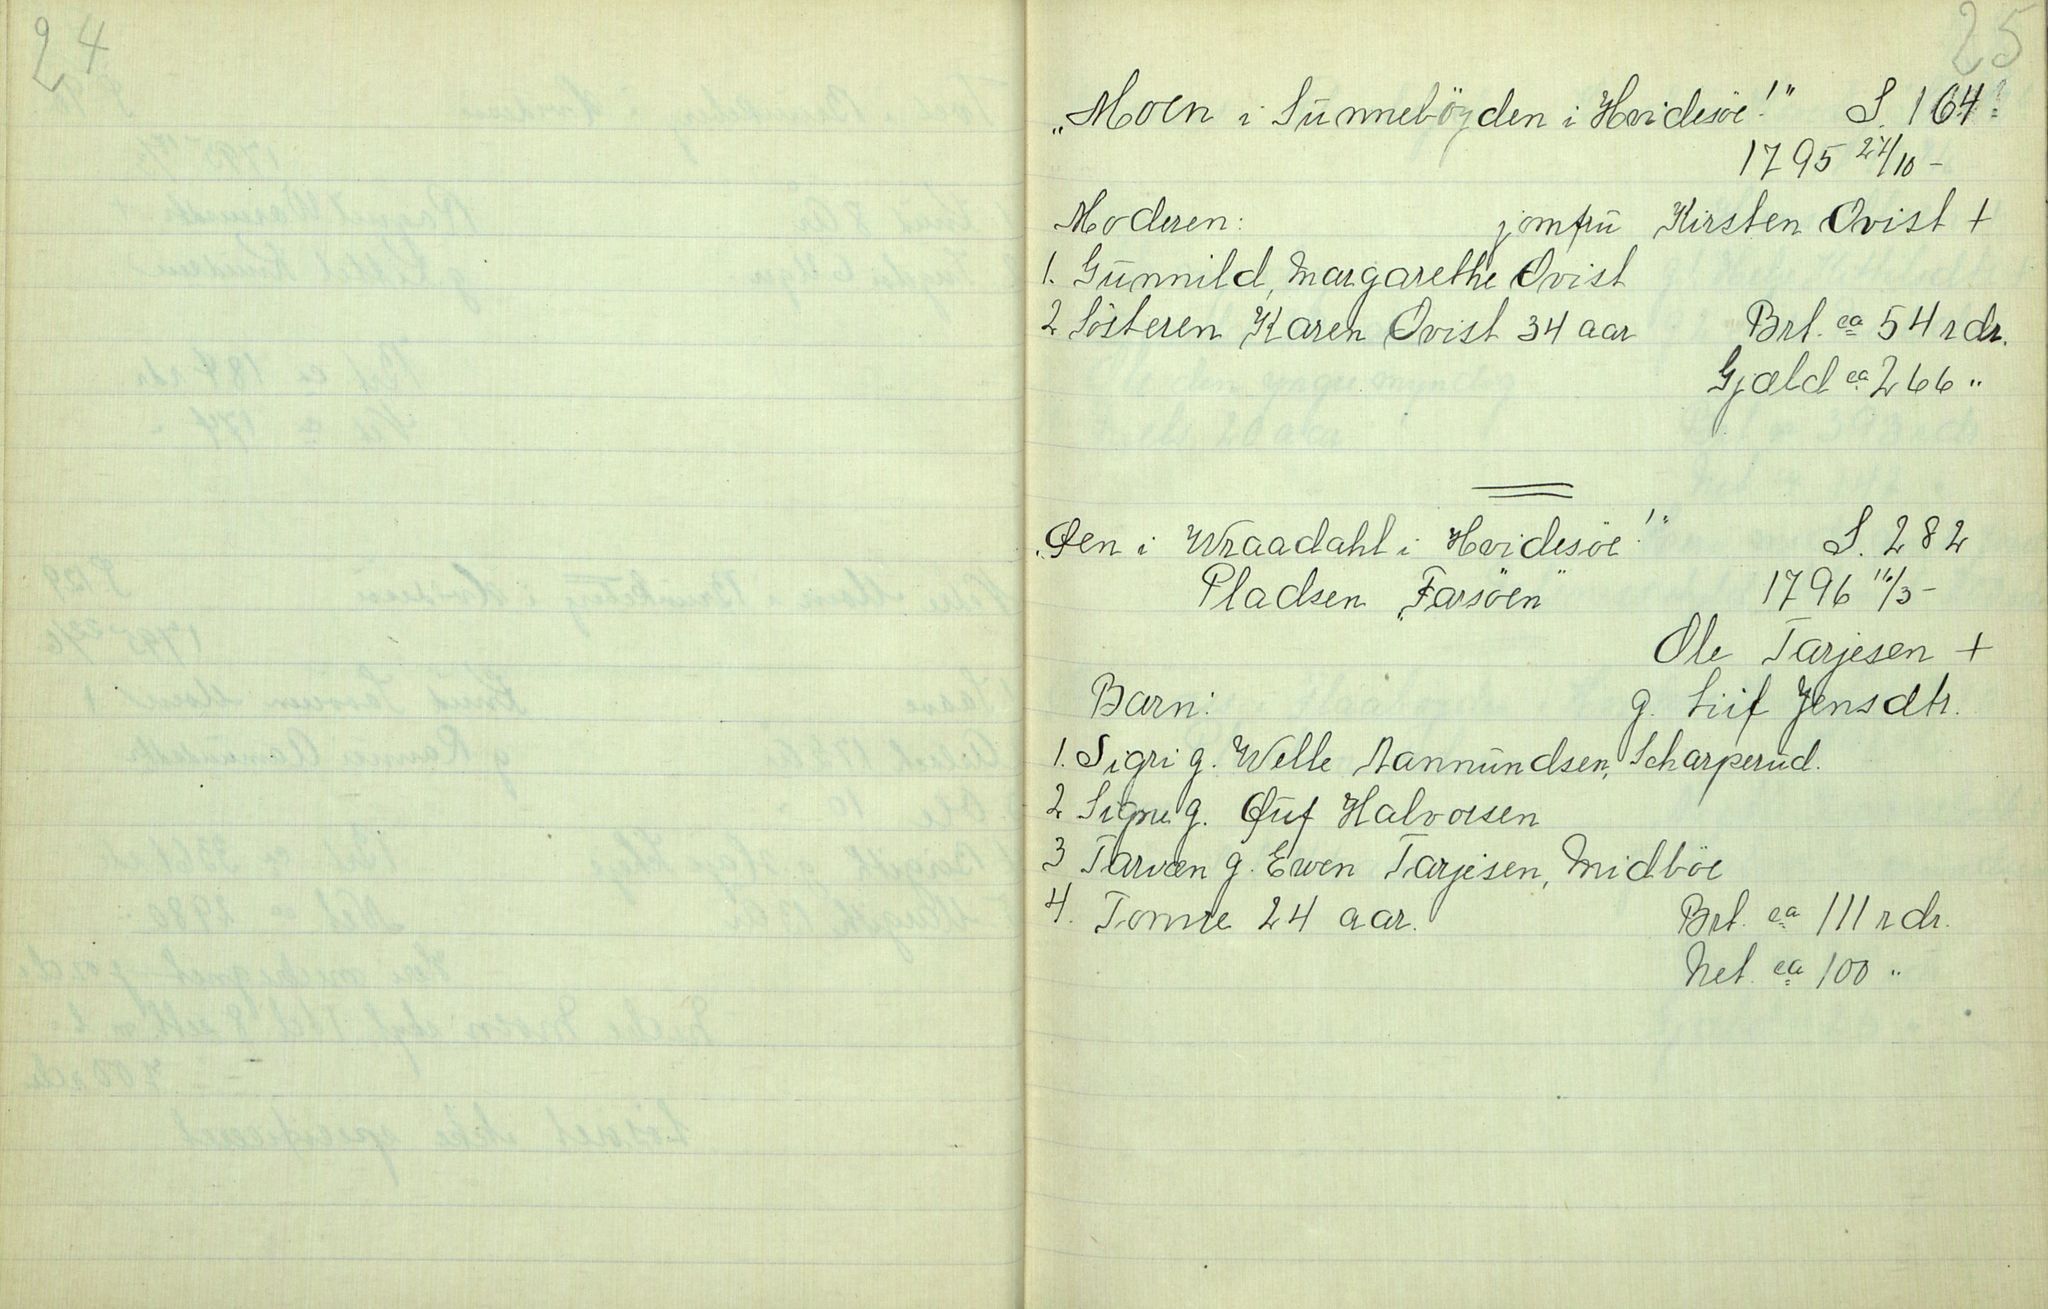 24
25
„Moen i Sunnebögden i Hvidesöe!" S. 164
1795 24/10 –
Moderen: jomfru Kirsten Qvist +
1. Gunnild, Margarethe Qvist
2 Sösteren Karen Qvist 34 aar Brt. ca 54 rdr.
Gjæld ca 266 "
„Øen i Wraadahl i Hvidesöe!" S. 282
Pladsen „Farsöen" 1796 16/3 –
Ole Tarjesen +
Barn: g. Liif Jensdtr.
1. Sigri g. Welle Aanmundsen, Scharperud.
2 Signe g. Øuf Halvorsen
3 Tarvæn g. Ewen Tarjesen, Midböe
4. Tomre 24 aar. Brt. ca 111 rdr.
Net. ca 100 "